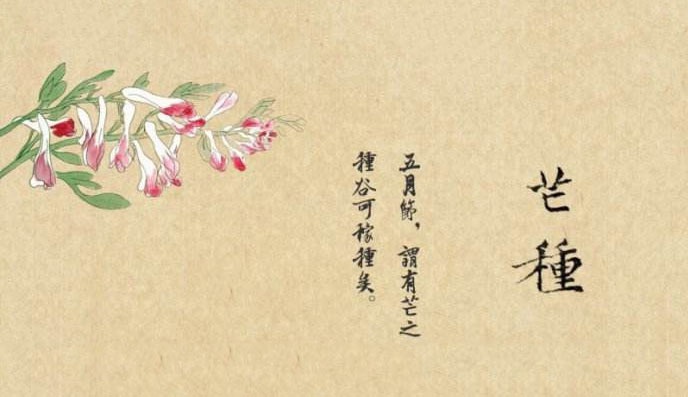 芒種
五月節，謂有芒之
種谷可稼種矣。